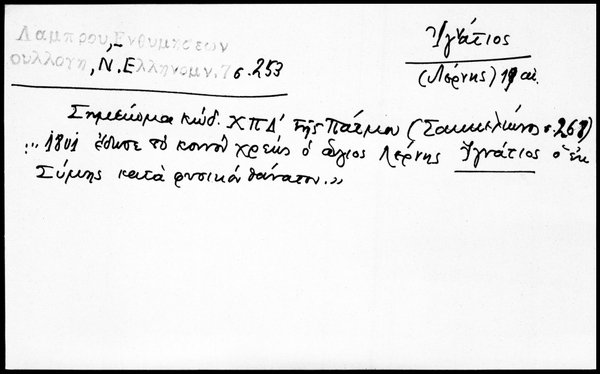 Λαμπρου, Ενθυμησεων
συλλογη, Ν. Ελληνομν. 7 σ. 253
Ἰγνάτιος
(Λέρνης) 19 αἰ.
Σημείωμα κώδ. ΧΠΔ' τῆς Πάτμου (Σακκελίωνος σ. 268)
"... 1801 ἔδωσε τὸ κοινὸν χρέως ὁ ἅγιος Λέρνης Ἰγνάτιος ὁ ἐκ
Σύμης κατὰ φυσικὸν θάνατον."